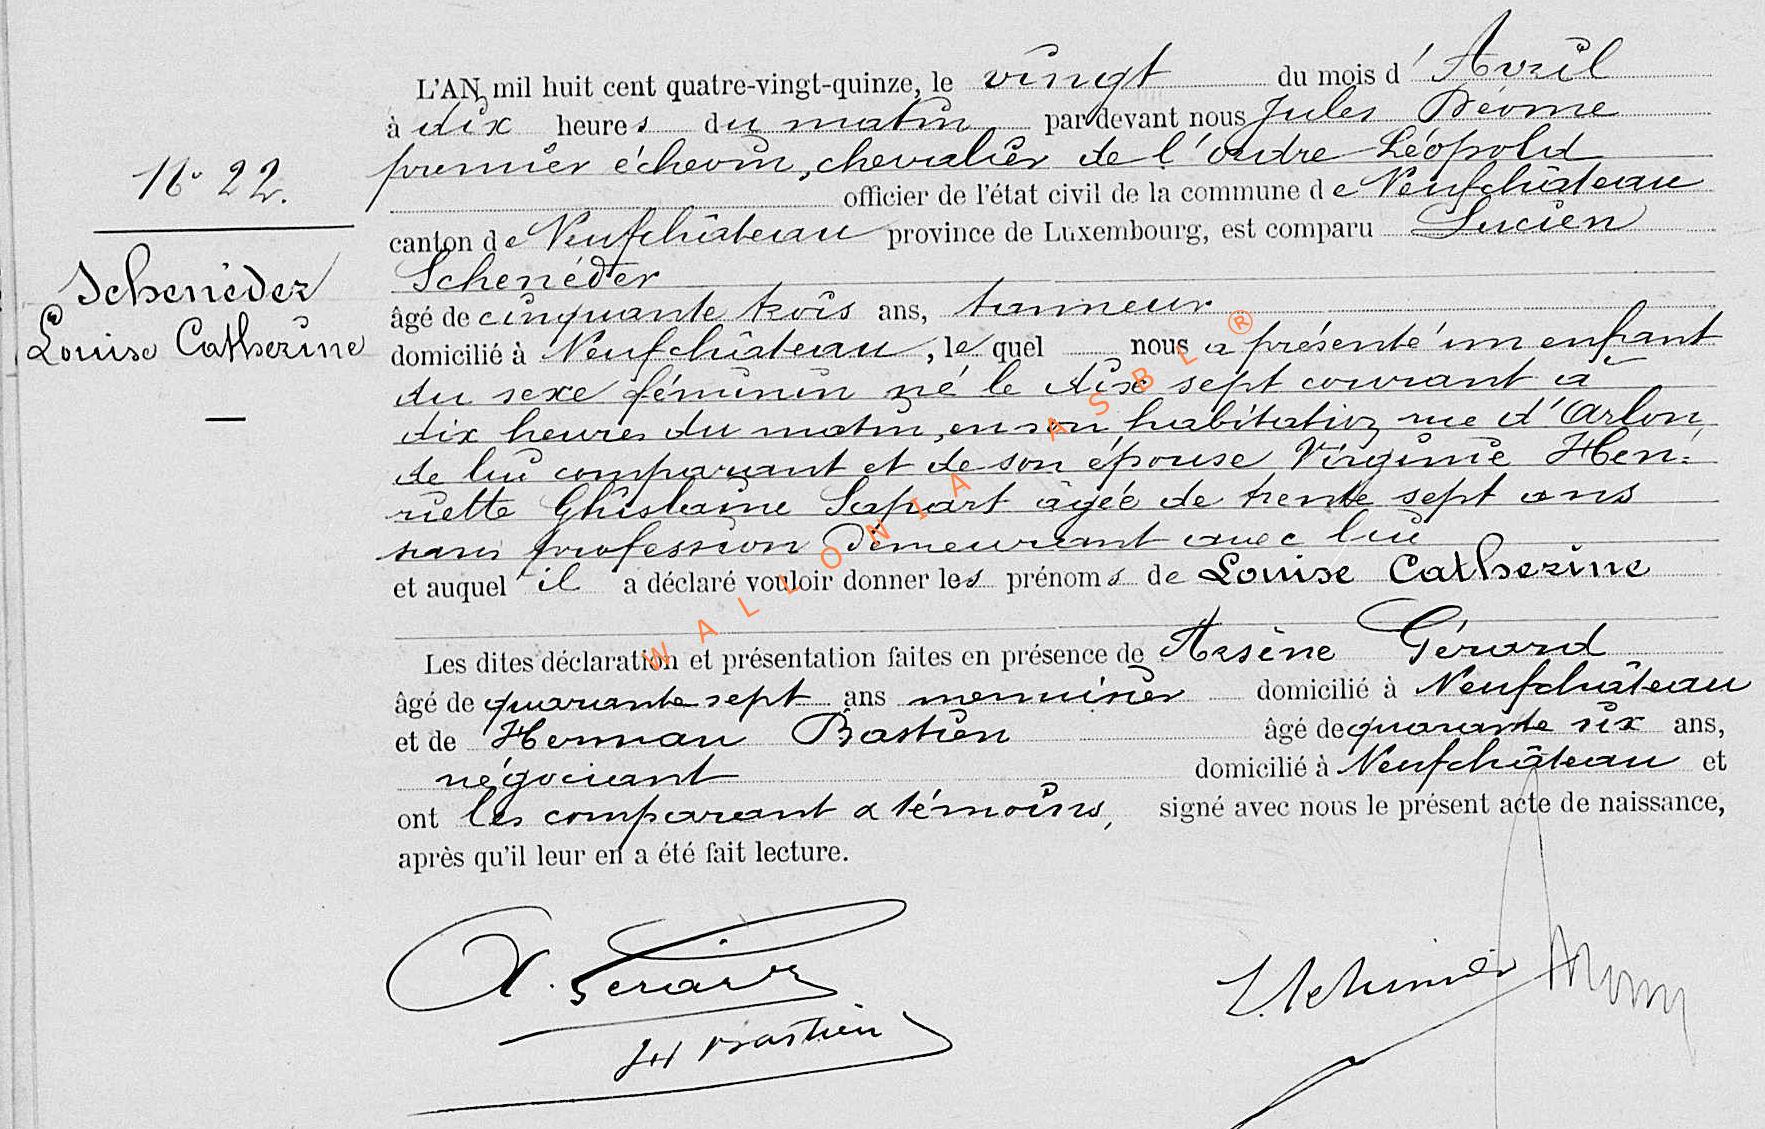 N° 22.
Schenéder
Louise Catherine
L'AN mil huit cent quatre-vingt-quinze, le vingt du mois d' Avril
à dix heures du matin par devant nous Jules Déome
premier échevin, chevalier de l'ordre Léopold
officier de l'état civil de la commune de Neufchâteau
canton de Neufchâteau province de Luxembourg, est comparu Lucien
Schenéder
âgé de cinquante trois ans, tanneur
domicilié à Neufchâteau, le quel nous a présenté un enfant
du sexe féminin né le dix sept courant à
dix heures du matin, en son habitation rue d'Arlon,
de lui comparant et de son épouse Virginie Hen=
riette Ghislaine Lapart âgée de trente sept ans
sans profession demeurant avec lui
et auquel il a déclaré vouloir donner les prénoms de Louise Catherine
Les dites déclaration et présentation faites en présence de Arsène Gérard
âgé de quarante sept ans menuisier domicilié à Neufchâteau
et de Herman Bastien âgé de quarante six ans,
négociant domicilié à Neufchâteau et
ont les comparant & témoins, signé avec nous le présent acte de naissance,
après qu'il leur en a été fait lecture.
A. Gerard
H Bastien
WALLONIA ASBL ®